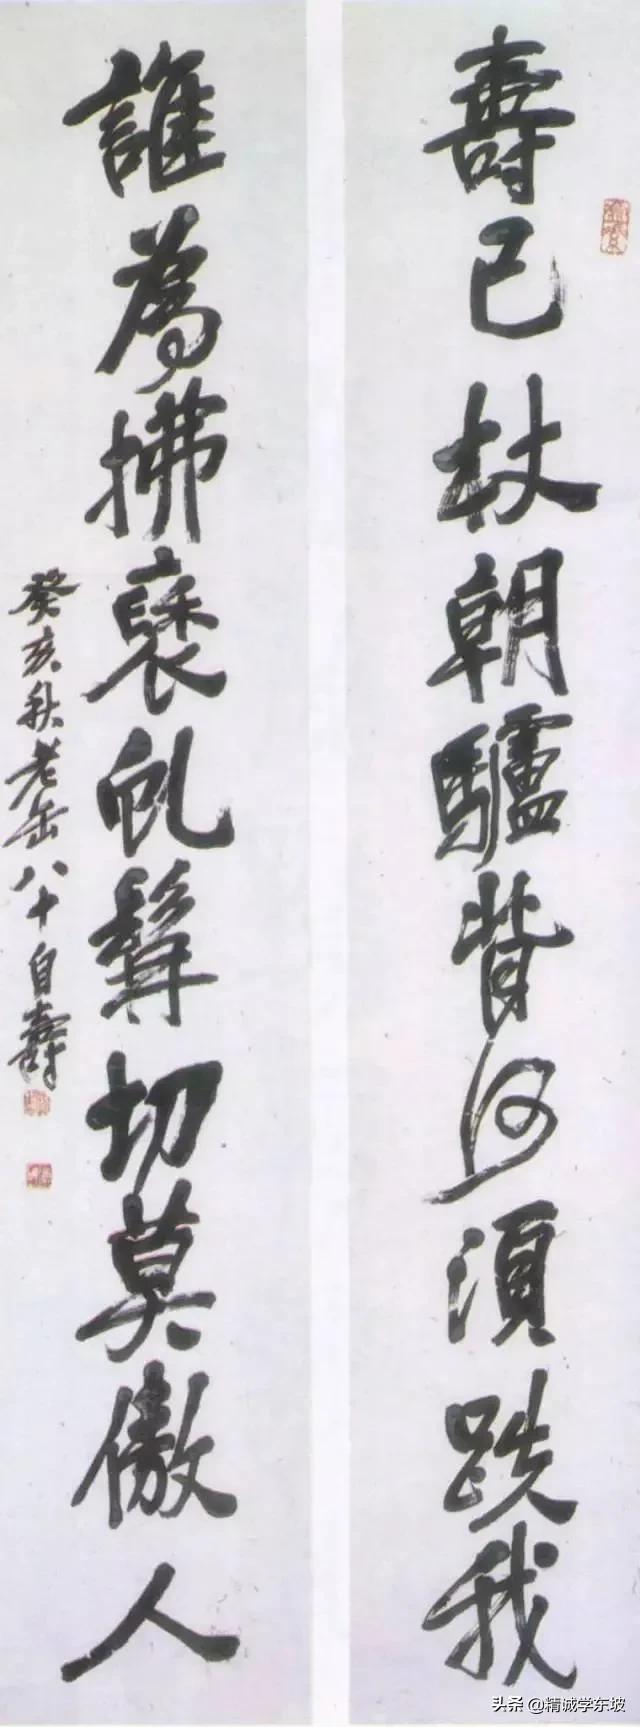 壽已杖朝驢背何須跌我
誰為拂褎虬髯切莫傲人
癸亥秋老缶八十自壽
头条 @精诚学东坡